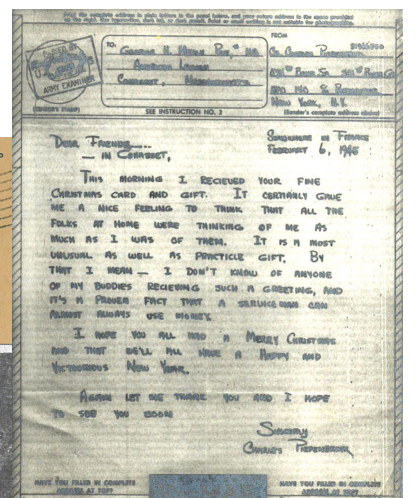 TO:
FROM
George H. Mealy Post, # 118
American Legion
Cohasset, Massachusetts
New York, N.Y.
ARMY EXAMINER
(CENSOR'S STAMP)
SEE INSTRUCTION NO. 2
(Sender's complete address above)
Dear Friends
— in Cohasset,
Somewhere in France
February 6, 1945
This morning I recieved your fine
Christmas card and gift. It certainly gave
me a nice feeling to think that all the
folks at home were thinking of me as
much as I was of them. It is a most
unusual as well as practicle gift. By
that I mean — I don't know of anyone
of my buddies recieving such a greeting, and
it's a proven fact that a serviceman can
almost always use money.
I hope you all had a Merry Christmas
and that we'll all have a Happy and
Victorious New Year.
Again let me thank you and I hope
to see you soon
Sincerely
Charles
HAVE YOU FILLED IN COMPLETE
ADDRESS AT TOP?
HAVE YOU FILLED IN COMPLETE
ADDRESS AT TOP?